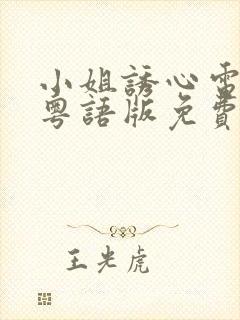 小姐誘心電
粵語版免費
王光虎